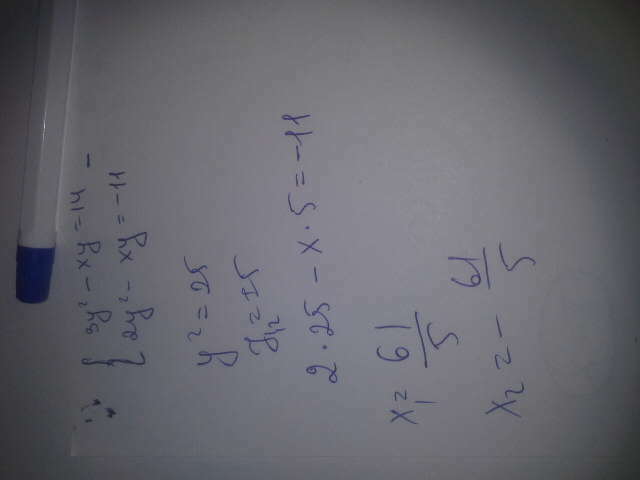 { 3y² - xy = 14 -
{ 2y² - xy = -11
y² = 25
y₁,₂ = ±5
2·25 - x·5 = -11
x₁ = 61/5
x₂ = - 61/5